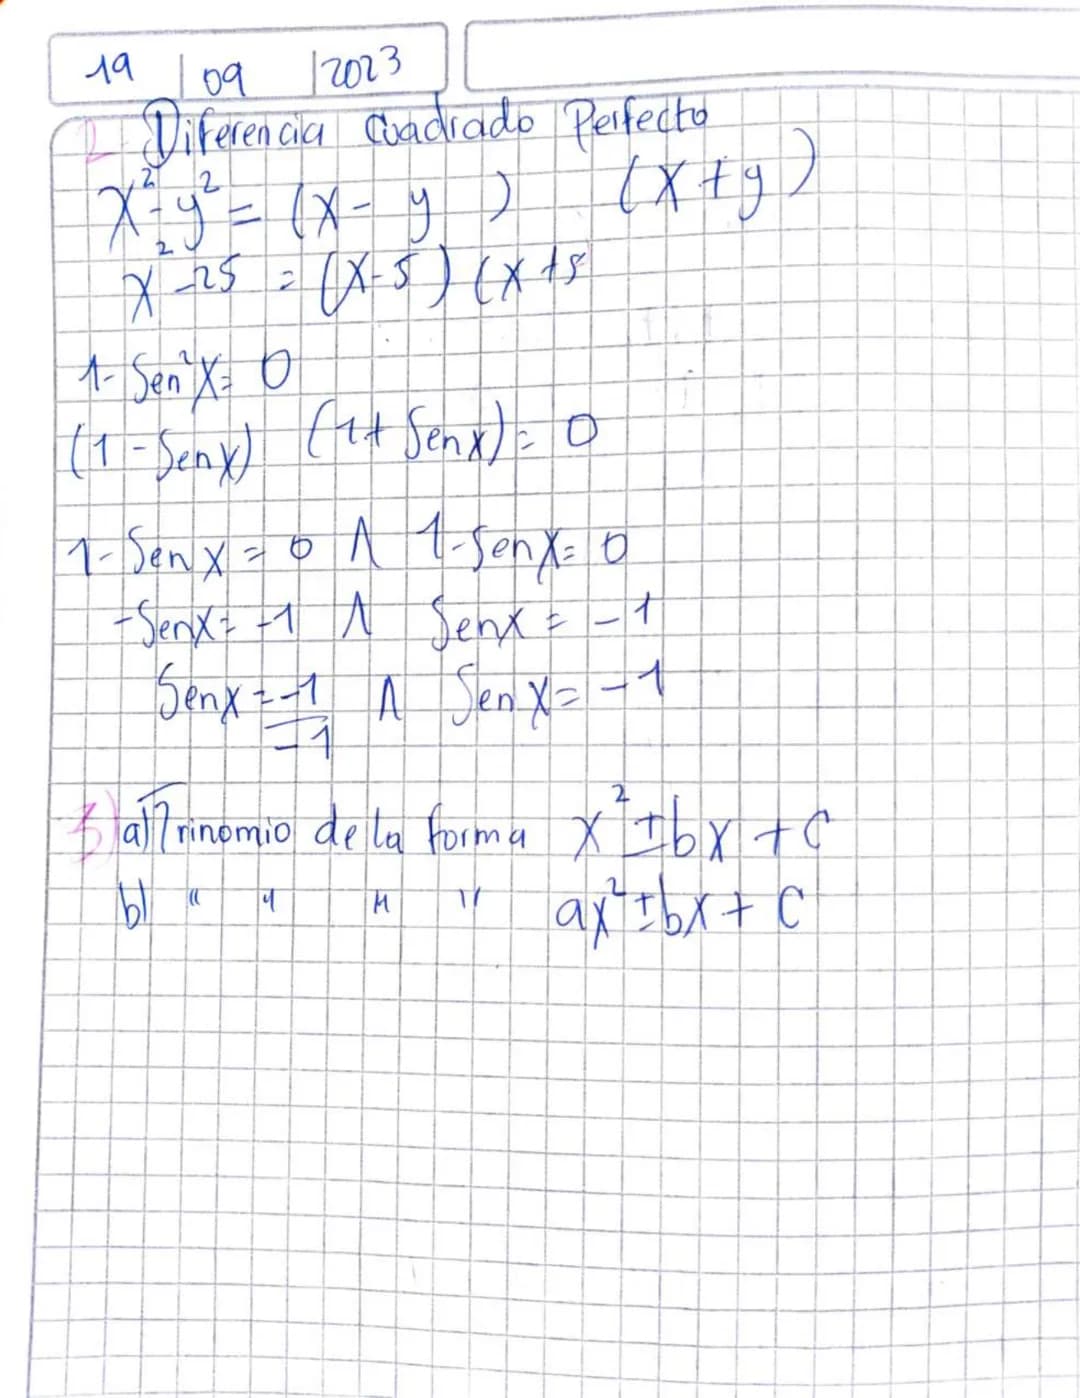 19 / 09 / 2023
2 Diferencia Cuadrado Perfecto
x² - y² = (x - y) (x + y)
x² - 25 = (x - 5) (x + 5
1 - Sen²x = 0
(1 - Senx) (1 + Senx) = 0
1 - Senx = 0 Λ 1 - Senx = 0
-Senx = -1 Λ Senx = -1
Senx = -1/-1 Λ Senx = -1
3) a) Trinomio de la forma x² ± bx + c
b) " " " " ax² ± bx + c